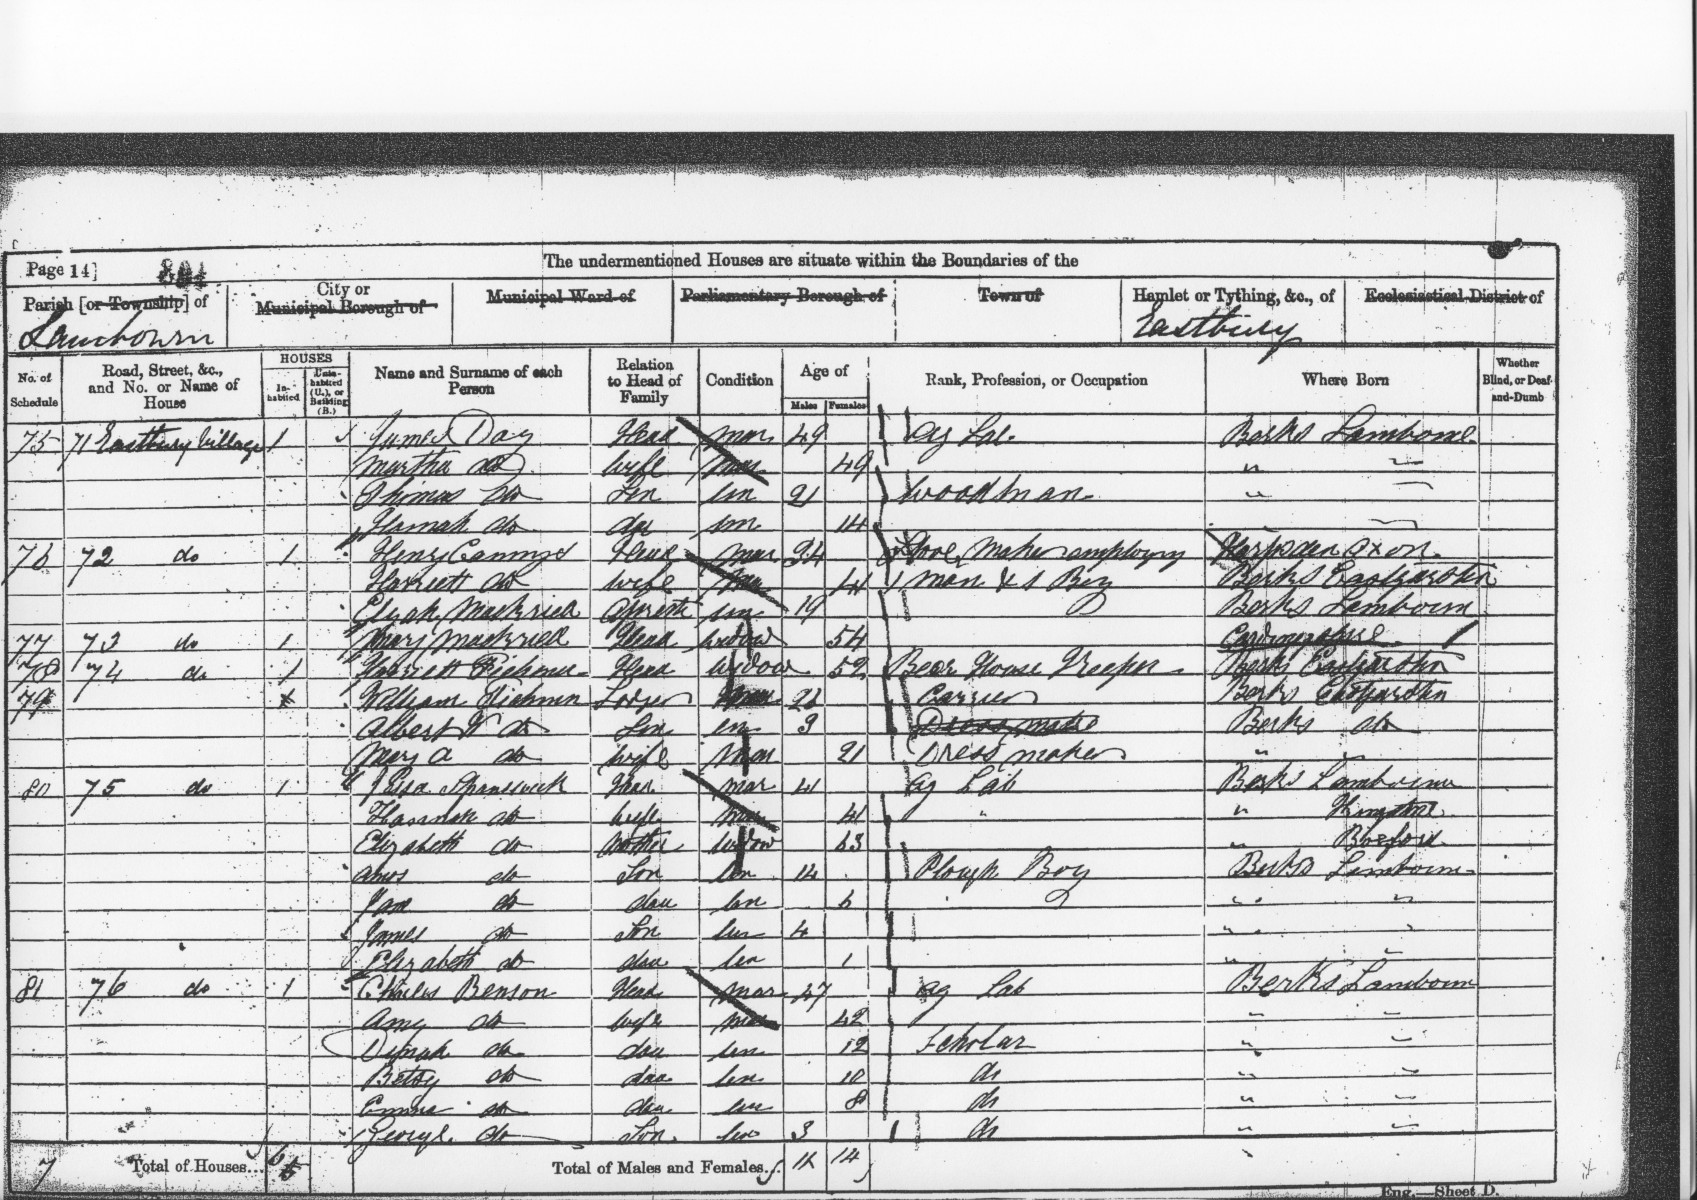 Page 14]
The undermentioned Houses are situate within the Boundaries of the
Parish [or Township] of
City or
Municipal Borough of
Municipal Ward of
Parliamentary Borough of
Town of
Hamlet or Tything, &c., of
Ecclesiastical District of
Lambourn
Eastbury
No. of Schedule
Road, Street, &c., and No. or Name of House
HOUSES
In-habited
Unin-habited (U.), or Building (B.)
Name and Surname of each Person
Relation to Head of Family
Condition
Age of
Males
Females
Rank, Profession, or Occupation
Where Born
Whether Blind, or Deaf-and-Dumb
75 71 Eastbury Village 1 James Day Head mar 49 Ag Lab. Berks Lamborne
Martha do wife mar 49 " "
Thomas do Son un 21 Woodman "
Hannah do dau un 14
76 72 do 1 Henry Head mar 34 Shoe Maker employing Oxon.
Harriett do wife mar 44 1 man & 1 Boy Berks
un 19 Berks Lambourn
77 73 do 1 Mary Head widow 54
78 74 do 1 Harriett Head widow 52 Beer House Keeper Berks
79 William Lodger 28 Carrier Berks
Albert W do Son un 3 Dress make Berks do
Mary A do wife mar 21 Dress maker "
80 75 do 1 Head mar 41 Ag Lab Berks Lambourn
Hannah do wife mar 41 " "
Elizabeth do Mother widow 63 "
Amos do Son un 14 Plough Boy Berks Lambourn
Jane do dau un 6 " "
James do Son un 4 " "
Elizabeth do dau un 1 " "
81 76 do 1 Charles Benson Head mar 47 Ag Lab Berks Lambourn
Amy do wife mar 42 " "
Dinah do dau un 12 Scholar " "
Betsy do dau un 10 do " "
Emma do dau un 8 do " "
George do Son un 3 do " "
7 Total of Houses... Total of Males and Females... 11 14
Eng.—Sheet D.